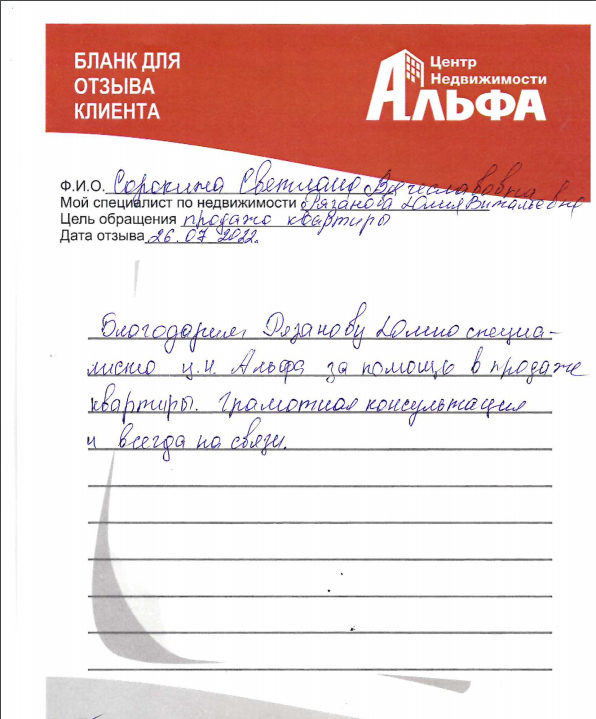 БЛАНК ДЛЯ
ОТЗЫВА
КЛИЕНТА
Центр
Недвижимости
АЛЬФА
Ф.И.О. Сорокина Светлана Вячеславовна
Мой специалист по недвижимости Рязанова Юлия Витальевна
Цель обращения продажа квартиры
Дата отзыва 26.07 2022.
Благодарим Рязанову Юлию специа-
листа ц.н. Альфа за помощь в продаже
квартиры. Грамотная консультация
и всегда на связи.